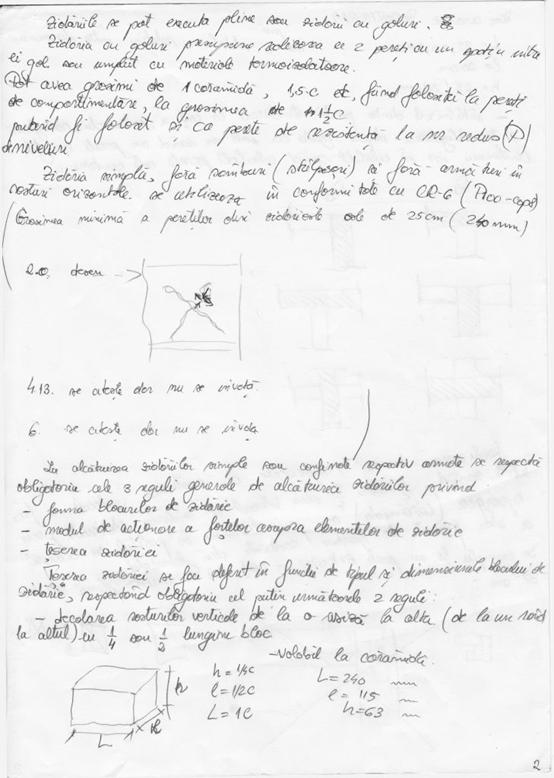 Zidăriile se pot executa pline sau zidării cu goluri.
Zidăria cu goluri presupune realizarea a 2 pereți cu un spațiu între
ei gol sau umplut cu materiale termoizolatoare.
Pot avea grosimi de 1 cărămidă, 1,5 c etc, fiind folosită la pereți
de compartimentare, la grosimea de 1 1/2 C
putând fi folosit și ca perete de rezistență la nr redus (P)
de niveluri
Zidăria simplă, fără sâmburi (stâlpișori) și fără armături în
rosturi orizontale se utilizează în conformitate cu CR-6
(Grosimea minimă a pereților din zidărie este de 25cm (240 mm)
desen →
4.13. se citește dar nu se învață
6. se citește dar nu se învață
La alcătuirea zidăriilor simple sau confinate respectiv armate se respectă
obligatoriu cele 3 reguli generale de alcătuirea zidăriilor privind
- forma blocurilor de zidărie
- modul de acționare a forțelor asupra elementelor de zidărie
- țeserea zidăriei
Țeserea zidăriei se face diferit în funcție de tipul și dimensiunile blocului de
zidărie, respectând obligatoriu cel puțin următoarele 2 reguli:
- decalarea rosturilor verticale de la o asiză la alta (de la un rând
la altul) cu 1/4 sau 1/2 lungime bloc
- Valabil la cărămidă.
h = 1/4C L = 240 mm
l = 1/2C l = 115 mm
L = 1C h = 63 mm
h
L
2